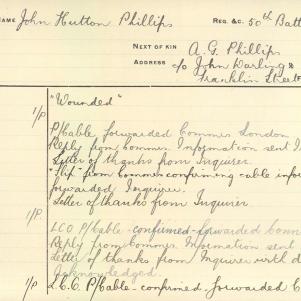 NAME John Hutton Phillips REG. &C. 50th Batt
NEXT OF KIN A. G. Phillips
ADDRESS c/o John Darling &
Franklin Street
1/P "Wounded"
P/Cable forwarded Commrs London
Reply from Commrs Information sent In
Letter of thanks from Inquirer.
"Slip" from Commrs confirming cable infor
forwarded Inquirer.
Letter of thanks from Inquirer
1/P LCO P/Cable - confirmed - forwarded Comm
Reply from Commrs. Information sent
Letter of thanks from Inquirer with d
Acknowledged.
1/P L.C.O P/Cable - confirmed - forwarded C